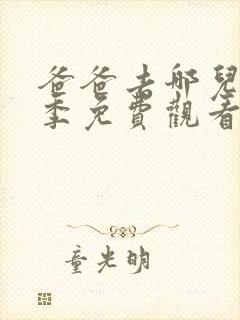 爸爸去哪兒
季免費觀看
童光明